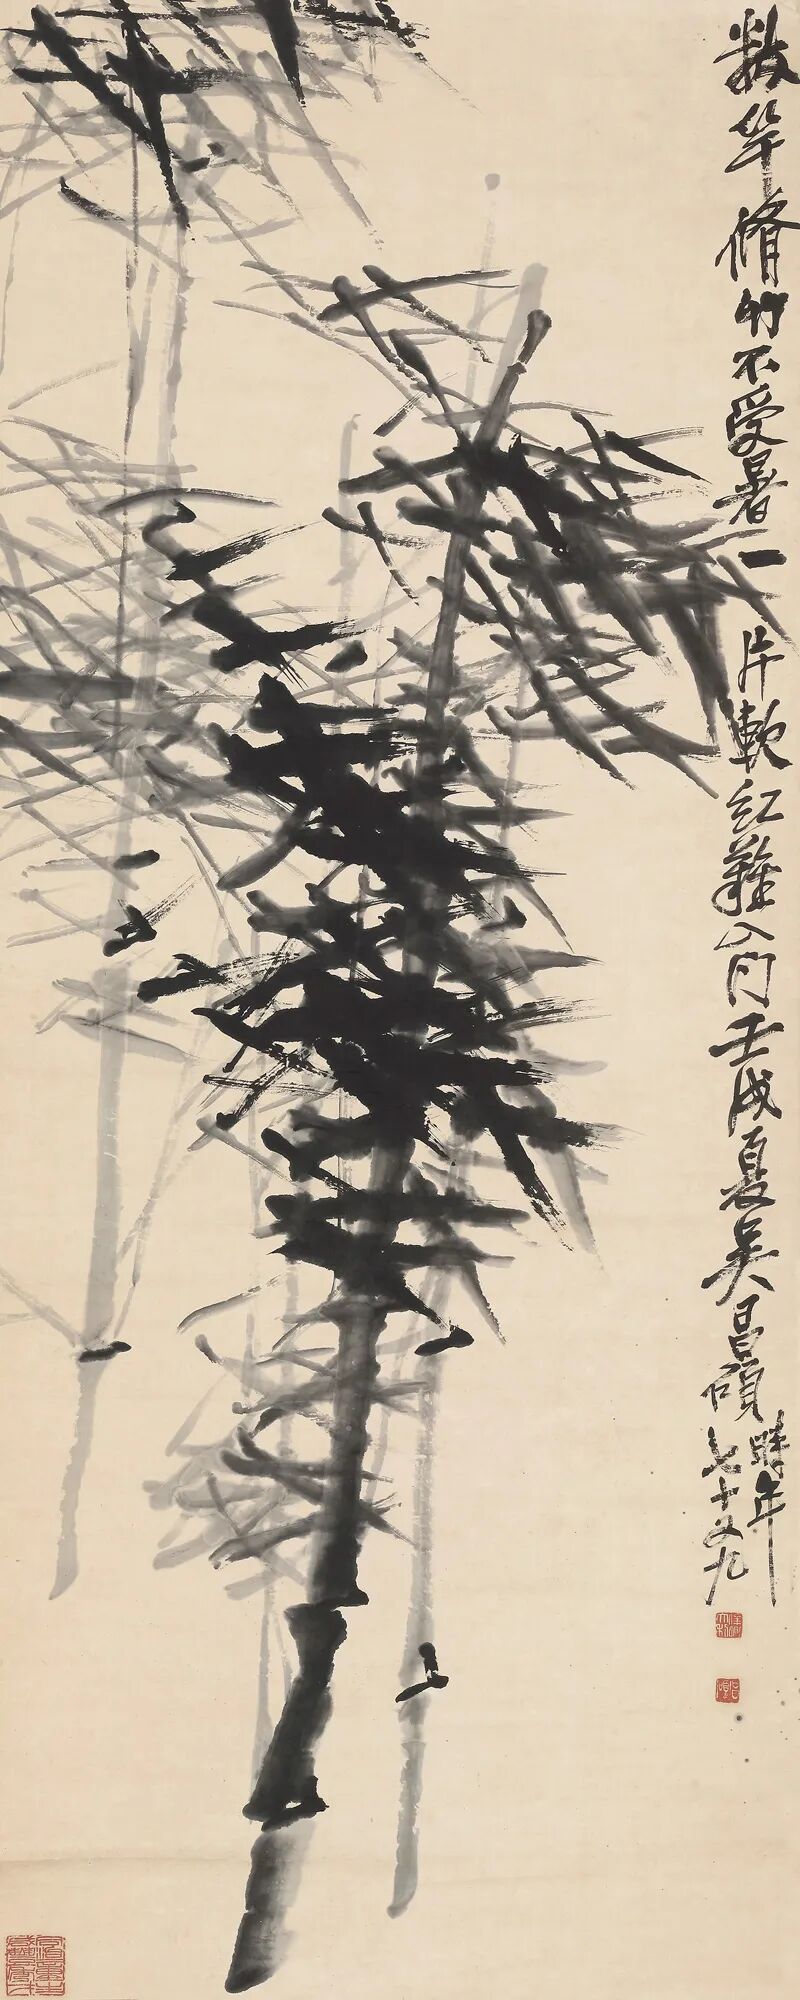 數竿脩竹不受暑一片軟紅難入門壬戌夏吳昌碩
時年
七十又九